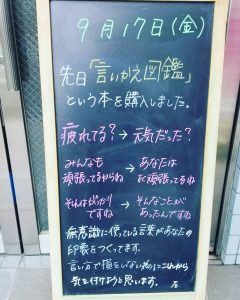 9月17日(金)
先日「言いかえ図鑑」
という本を購入しました。
疲れてる?→元気だった?
みんなも
頑張ってるからね
→
あなたは
頑張ってるね
それはばっかり
ですね
→
そんなことが
あったんですね
無意識に使っている言葉があなたの
印象をつくってます。
言い方で損をしない
これから
気を付けようと思います。